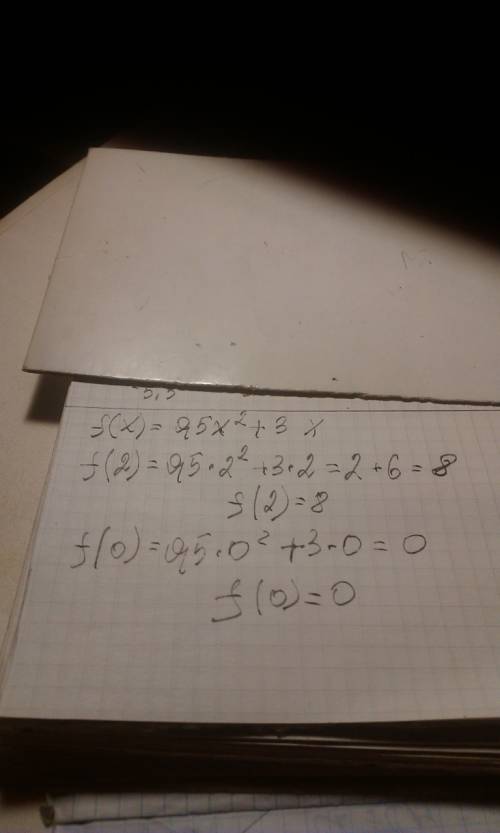 f(x) = 0,5x² + 3x
f(2) = 0,5·2² + 3·2 = 2 + 6 = 8
f(2) = 8
f(0) = 0,5·0² + 3·0 = 0
f(0) = 0